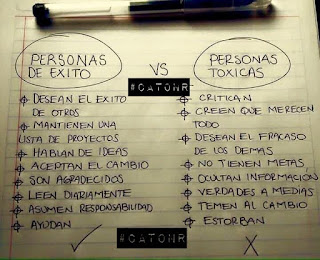 PERSONAS
DE EXITO
VS
PERSONAS
TOXICAS
#CATOHR
DESEAN EL EXITO
DE OTROS
MANTIENEN UNA
LISTA DE PROYECTOS
HABLAN DE IDEAS
ACEPTAN EL CAMBIO
SON AGRADECIDOS
LEEN DIARIAMENTE
ASUMEN RESPONSABILIDAD
AYUDAN
CRITICAN
CREEN QUE MERECEN
TODO
DESEAN EL FRACASO
DE LOS DEMAS
NO TIENEN METAS
OCULTAN INFORMACION
VERDADES A MEDIAS
TEMEN AL CAMBIO
ESTORBAN
#CATOHR
X